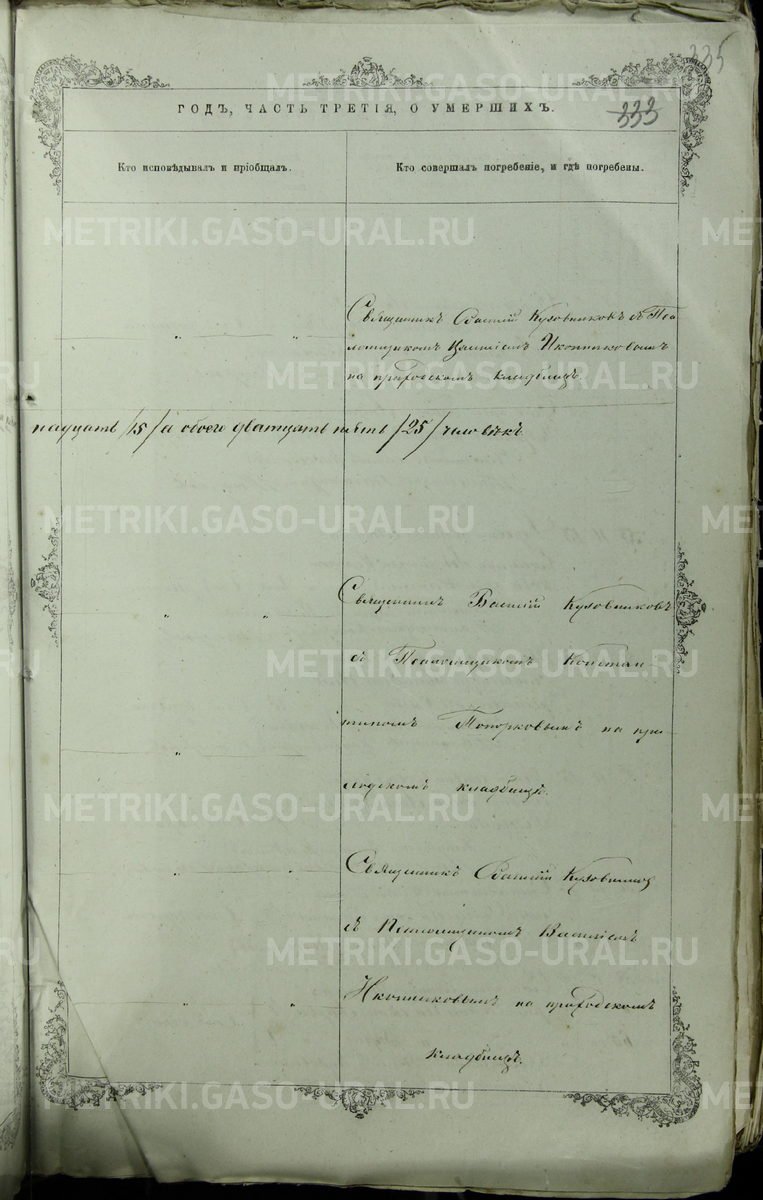 335
333
ГОДЪ, ЧАСТЬ ТРЕТІЯ, О УМЕРШИХЪ.
Кто исповѣдывалъ и пріобщалъ.
Кто совершалъ погребеніе, и гдѣ погребены.
Священникъ Василій Кузовниковъ съ Пса
ломщикомъ Василіемъ Иконниковымъ
на приходскомъ кладбищѣ.
надцать /15/ а обоего дватцать пять /25/ человѣкъ.
Священникъ Василій Кузовниковъ
съ Псаломщикомъ Констан
тиномъ Топорковымъ на при-
ходскомъ кладбищѣ.
Священникъ Василій Кузовников
съ Псаломщикомъ Василіемъ
Иконниковымъ на приходскомъ
кладбищѣ.
METRIKI.GASO-URAL.RU